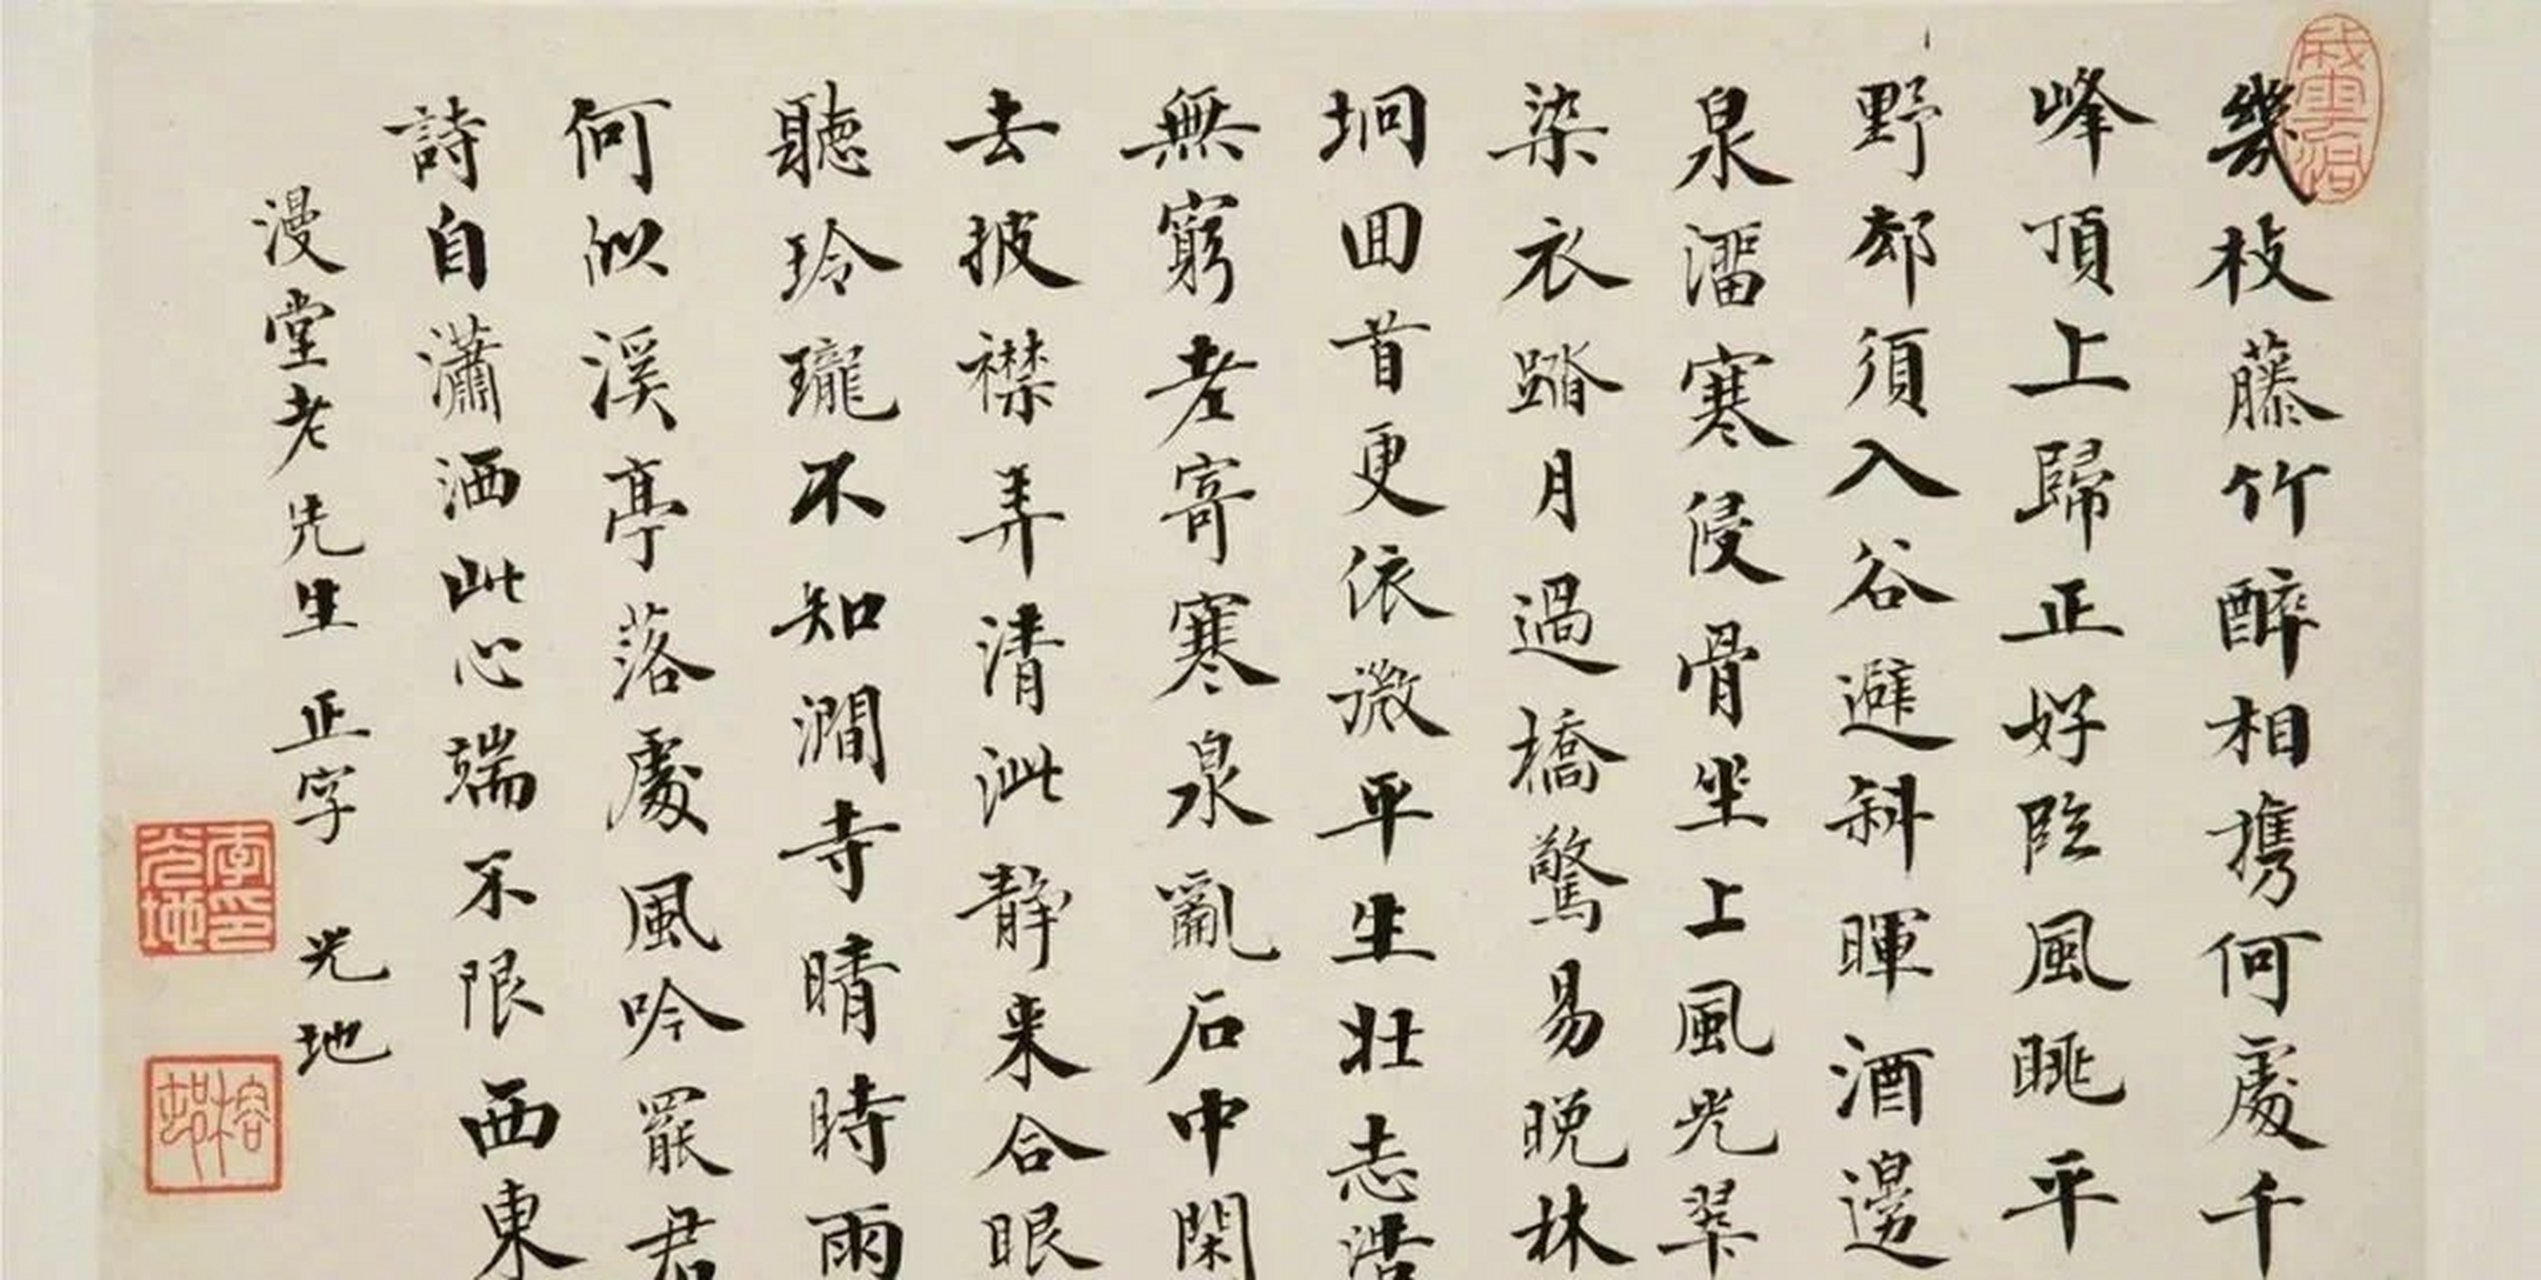 幾枝藤竹醉相携何處千
峰頂上歸正好臨風眺平
野郊須入谷避斜暉酒邊
泉溜寒侵骨坐上風光翠
染衣踏月過橋驚易晚林
坰回首更依微平生壯志浩
無窮老寄寒泉亂石中閑
去披襟弄清泚静来合眼
聽玲瓏不知澗寺晴時雨
何似溪亭落處風吟罷君
詩自瀟洒此心端不限西東
漫堂老先生 正字 光地
李光地印